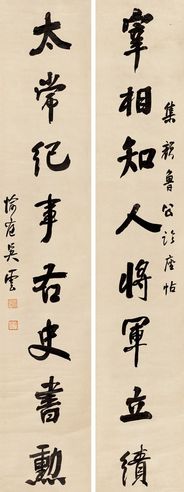 宰相知人將軍立績
集顏魯公論座帖
太常紀事右史書勳
愉庭吳雲